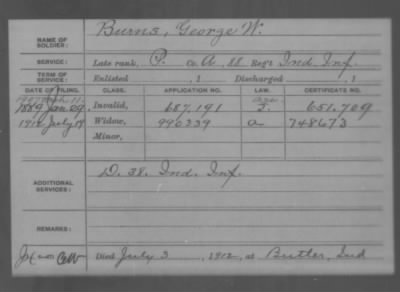 NAME OF SOLDIER: Burns, George W.
SERVICE: Late rank, P. Co A, 88 Reg't Ind. Inf.
TERM OF SERVICE: Enlisted , 1 Discharged , 1
DATE OF FILING. CLASS. APPLICATION NO. LAW. CERTIFICATE NO.
1889 Jan. 29 Invalid, 687,191 J. 651,709
1912 July 19 Widow, 990239 a 748673
Minor,
ADDITIONAL SERVICES: D. 38. Ind. Inf.
REMARKS:
Died July 3, 1912, at Butler, Ind